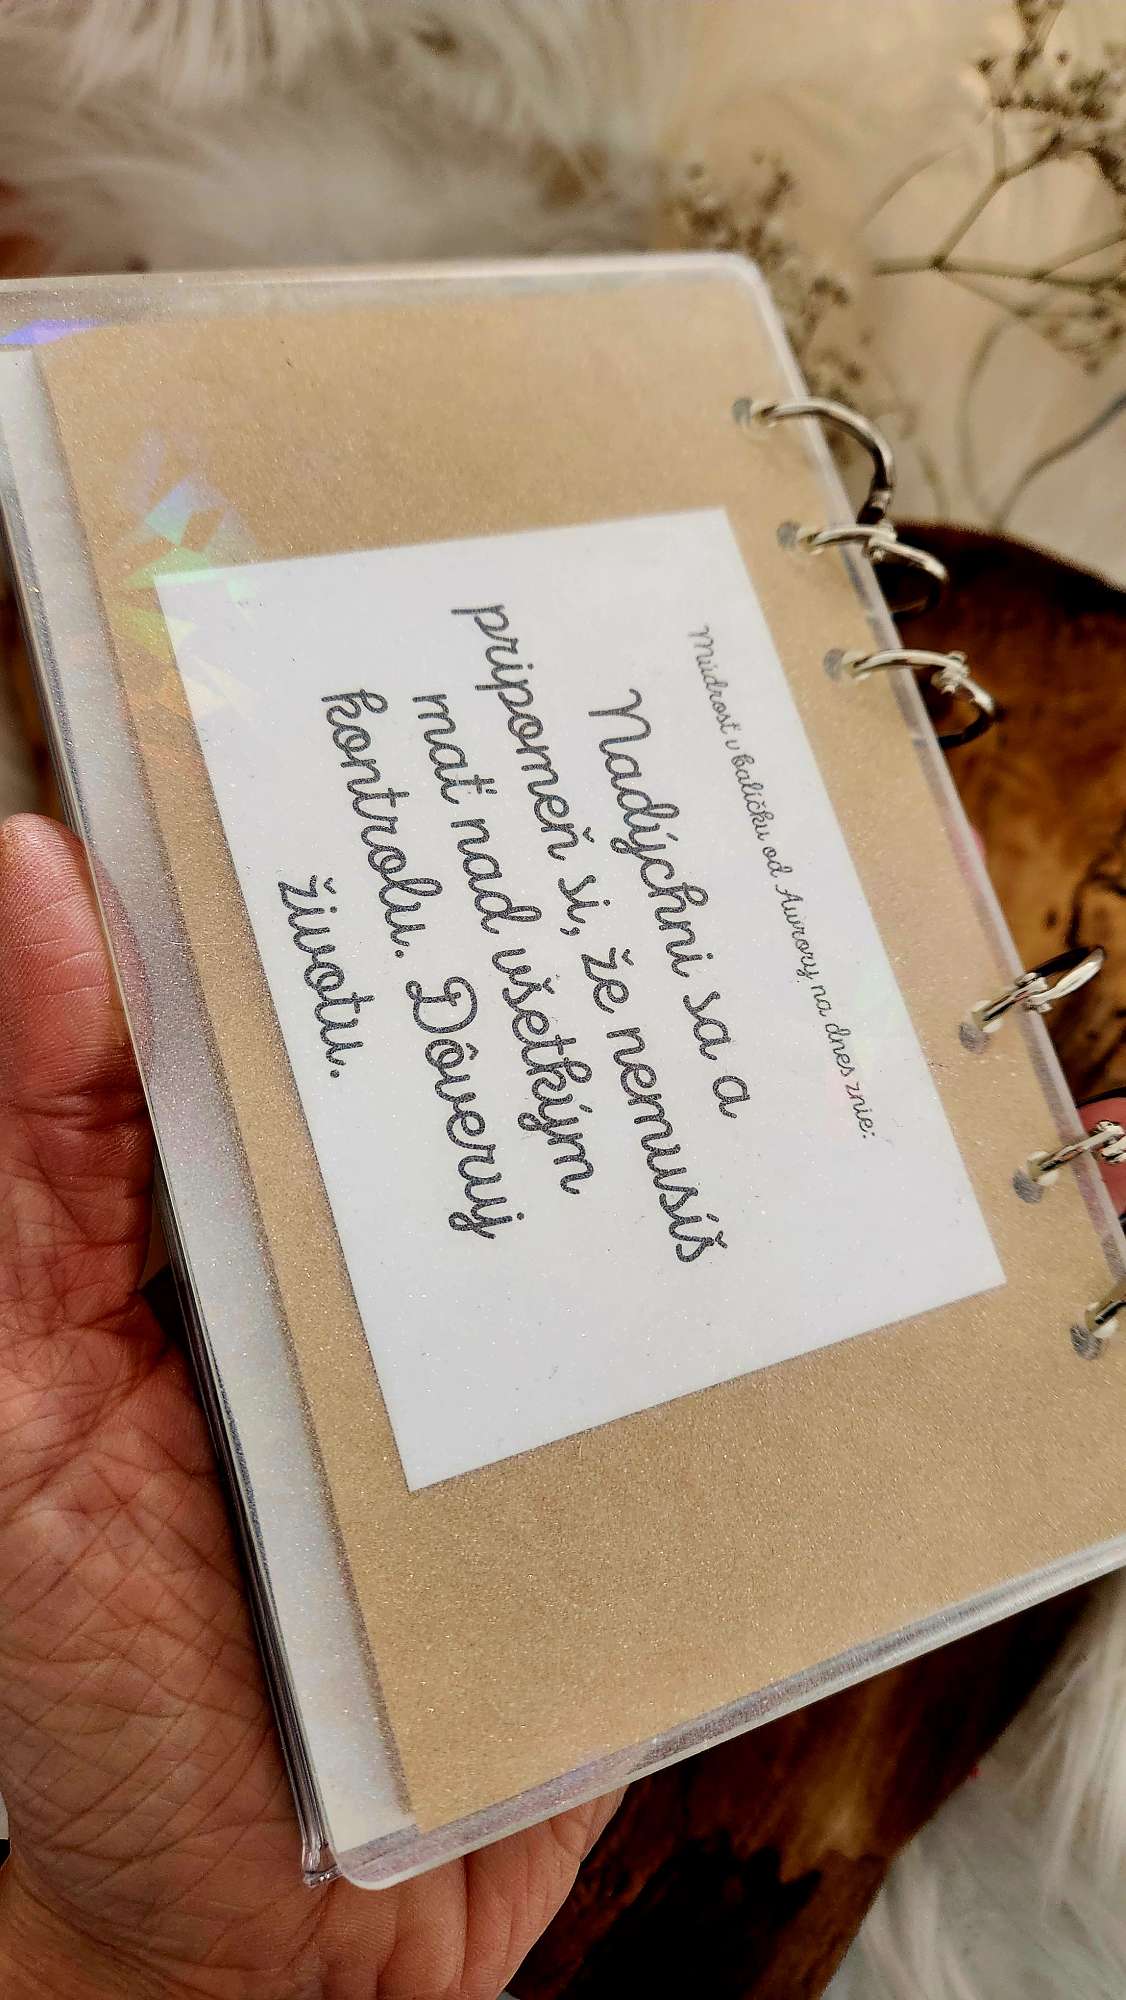 Múdrosť v balíčku od Aurory na dnes znie:
Nadýchni sa a
pripomeň si, že nemusíš
mať nad všetkým
kontrolu. Dôveruj
životu.